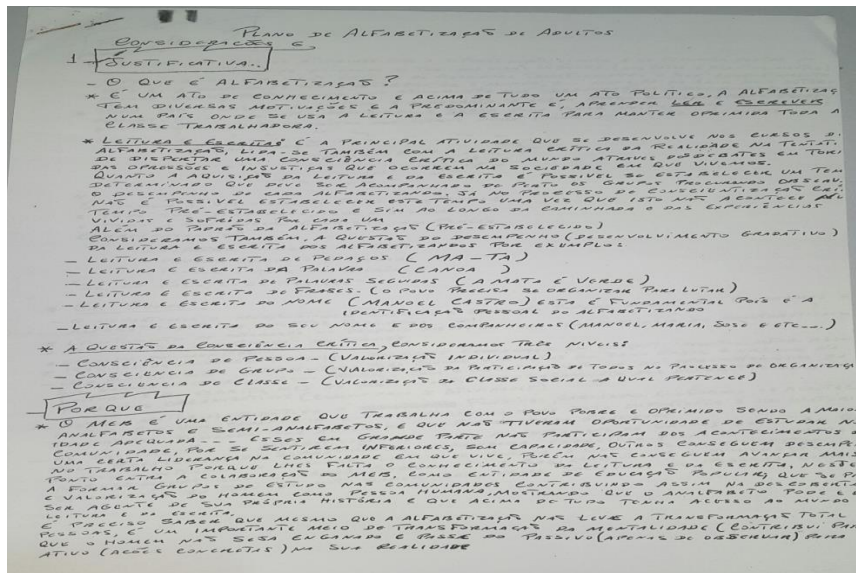 PLANO DE ALFABETIZAÇÃO DE ADULTOS
CONSIDERAÇÕES E
1 - JUSTIFICATIVA..
- O QUE É ALFABETIZAÇÃO?
* É UM ATO DE CONHECIMENTO E ACIMA DE TUDO UM ATO POLÍTICO, A ALFABETIZAÇ
TEM DIVERSAS MOTIVAÇÕES E A PREDOMINANTE É, APRENDER LER E ESCREVER
NUM PAÍS ONDE SE USA A LEITURA E A ESCRITA PARA MANTER OPRIMIDA TODA A
CLASSE TRABALHADORA.
* LEITURA E ESCRITAS É A PRINCIPAL ATIVIDADE QUE SE DESENVOLVE NOS CURSOS D
ALFABETIZAÇÃO, LIDA-SE TAMBÉM COM A LEITURA CRÍTICA DA REALIDADE NA TENTATI
DE DISPERTAR UMA CONSCIÊNCIA CRÍTICA DO MUNDO ATRAVÉS DOS DEBATES EM TOR
DAS OPRESSÕES E INJUSTIÇAS QUE OCORREM NA SOCIEDADE EM QUE VIVEMOS.
QUANTO A AQUISIÇÃO DA LEITURA E DA ESCRITA É POSSIVEL SE ESTABELECER UM TEM
DETERMINADO QUE DEVE SER ACOMPANHADO DE PERTO OS GRUPOS PROCURANDO OBSERVAR
O DESEMPENHO DE CADA ALFABETIZANDO, JÁ NO PROCESSO DE CONCIENTIZAÇÃO CRÍ
NÃO É POSSIVEL ESTABELECER ESTE TEMPO UMA VEZ QUE ISTO NÃO ACONTECE
TEMPO PRÉ-ESTABELECIDO E SIM AO LONGO DA CAMINHADA E DAS EXPERIÊNCIAS
VIVIDAS SOFRIDAS POR CADA UM
ALÉM DO PADRÃO DA ALFABETIZAÇÃO (PRÉ-ESTABELECIDO)
CONSIDERAMOS TAMBÉM, A QUESTÃO DO DESEMPENHO (DESENVOLVIMENTO GRADATIVO)
DA LEITURA E ESCRITA DOS ALFABETIZANDOS POR EXEMPLOS:
- LEITURA E ESCRITA DE PEDAÇOS (MA-TA)
- LEITURA E ESCRITA DA PALAVRA (CANOA)
- LEITURA E ESCRITA DE PALAVRAS SEGUIDAS (A MATA É VERDE)
- LEITURA E ESCRITA DE FRASES. (O POVO PRECISA SE ORGANIZAR PARA LUTAR)
- LEITURA E ESCRITA DO NOME (MANOEL CASTRO) ESTA É FUNDAMENTAL POIS É A
IDENTIFICAÇÃO PESSOAL DO ALFABETIZANDO
- LEITURA E ESCRITA DO SEU NOME E DOS COMPANHEIROS (MANOEL, MARIA, JOSÉ E ETC...)
* A QUESTÃO DA CONSCIÊNCIA CRÍTICA, CONSIDERAMOS TRÊS NIVEIS:
- CONSCIÊNCIA DE PESSOA - (VALORIZAÇÃO INDIVIDUAL)
- CONSCIENCIA DE GRUPO - (VALORIZAÇÃO DA PARTICIPAÇÃO DE TODOS NO PROCESSO DE ORGANIZAÇÃ
- CONSCIENCIA DE CLASSE - (VALORIZAÇÃO DA CLASSE SOCIAL A QUAL PERTENCE)
- POR QUE
* O MEB É UMA ENTIDADE QUE TRABALHA COM O POVO POBRE E OPRIMIDO SENDO A MAIO
ANALFABETOS E SEMI-ANALFABETOS, E QUE NÃO TIVERAM OPORTUNIDADE DE ESTUDAR NA
IDADE ADEQUADA --- ESSES EM GRANDE PARTE NÃO PARTICIPAM DOS ACONTECIMENTOS
COMUNIDADE, POR SE SENTIREM INFERIORES, SEM CAPACIDADE, OUTROS CONSEGUEM DESEMPE
UMA CERTA LIDERANÇA NA COMUNIDADE EM QUE VIVE, PORÉM NÃO CONSEGUEM AVANÇAR MAIS
NO TRABALHO PORQUE LHES FALTA O CONHECIMENTO DA LEITURA E DA ESCRITA, NESTE
PONTO ENTRA A COLABORAÇÃO DO MEB, COMO ENTIDADE DE EDUCAÇÃO POPULAR, QUE SE
A FORMAR GRUPOS DE ESTUDO NAS COMUNIDADES CONTRIBUINDO ASSIM NA DESCOBERTA
E VALORIZAÇÃO DO HOMEM COMO PESSOA HUMANA, MOSTRANDO QUE O ANALFABETO PODE E
SER AGENTE DE SUA PRÓPRIA HISTÓRIA E QUE ACIMA DE TUDO TENHA ACESSO AO MUNDO
LEITURA E DA ESCRITA.
É PRECISO SABER QUE MESMO QUE A ALFABETIZAÇÃO NÃO LEVE A TRANSFORMAÇÃO TOTAL
PESSOAS, É UM IMPORTANTE MEIO DE TRANSFORMAÇÃO DA MENTALIDADE (CONTRIBUI PAR
QUE O HOMEM NÃO SEJA ENGANADO E PASSE DO PASSIVO (APENAS DE OBSERVAR) PARA
ATIVO (AÇÕES CONCRETAS) NA SUA REALIDADE